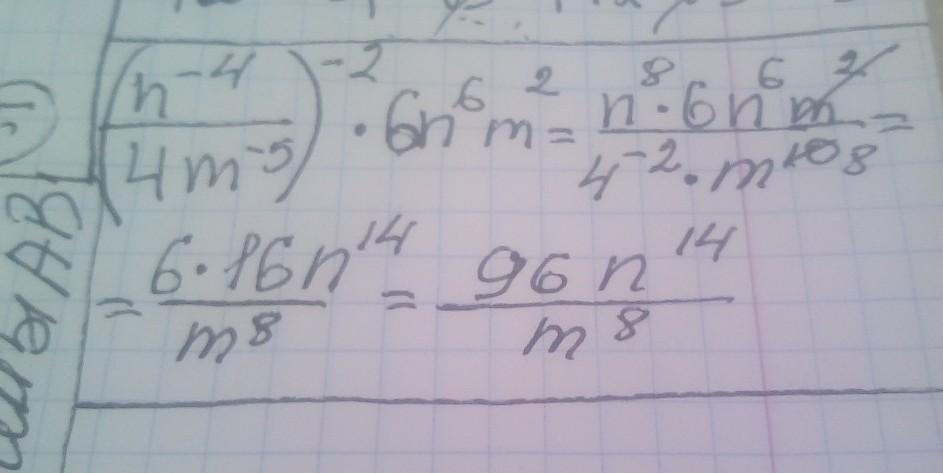 (n⁻⁴ / 4m⁻⁵)⁻² · 6n⁶m² = n⁸ · 6n⁶m² / 4⁻² · m¹⁰ 8 =
= 6 · 16n¹⁴ / m⁸ = 96n¹⁴ / m⁸